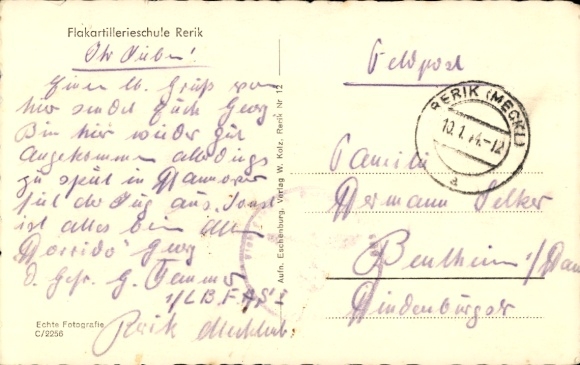 Flakartillerieschule Rerik
Ihr Lieben!
Einen lb. Gruß von
hier sendet Euch Georg
Bin hier wieder gut
angekommen allerdings
zu spät in Hannover
fiel der Zug aus. Sonst
ist alles beim alten
Georg
d. Gefr. G.
Rerik Mecklenb.
Echte Fotografie
C/2256
Aufn. Eschenburg, Verlag W. Kolz, Rerik Nr 12
Feldpost
RERIK (MECKL)
10.1.44.-12
a
Familie
Hermann
Bentheim
Hindenburgstr